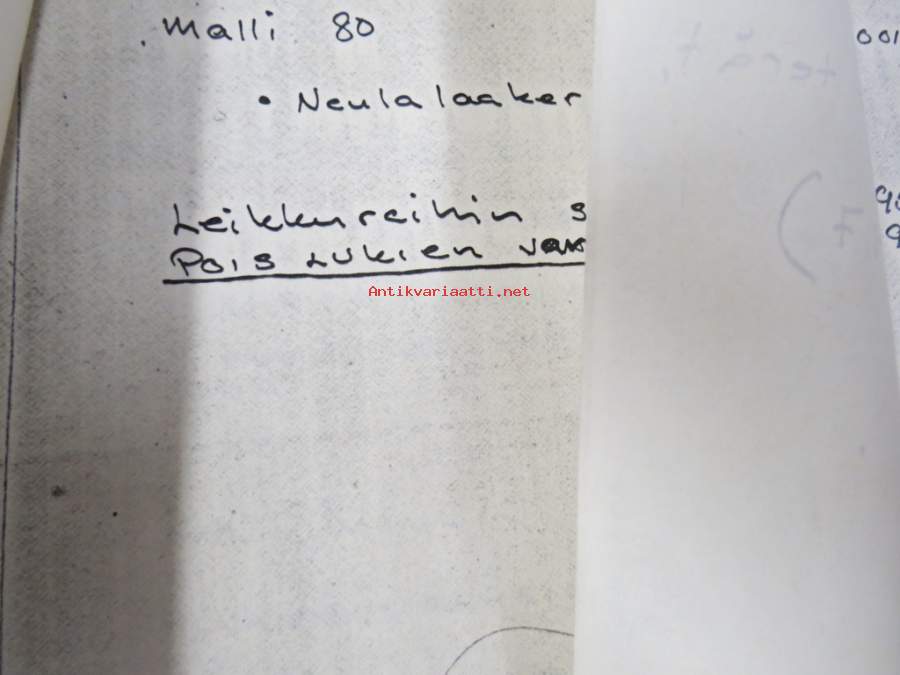 Malli 80
001
• Neulalaaker
Leikkureihin s
Pois lukien
Antikvariaatti.net